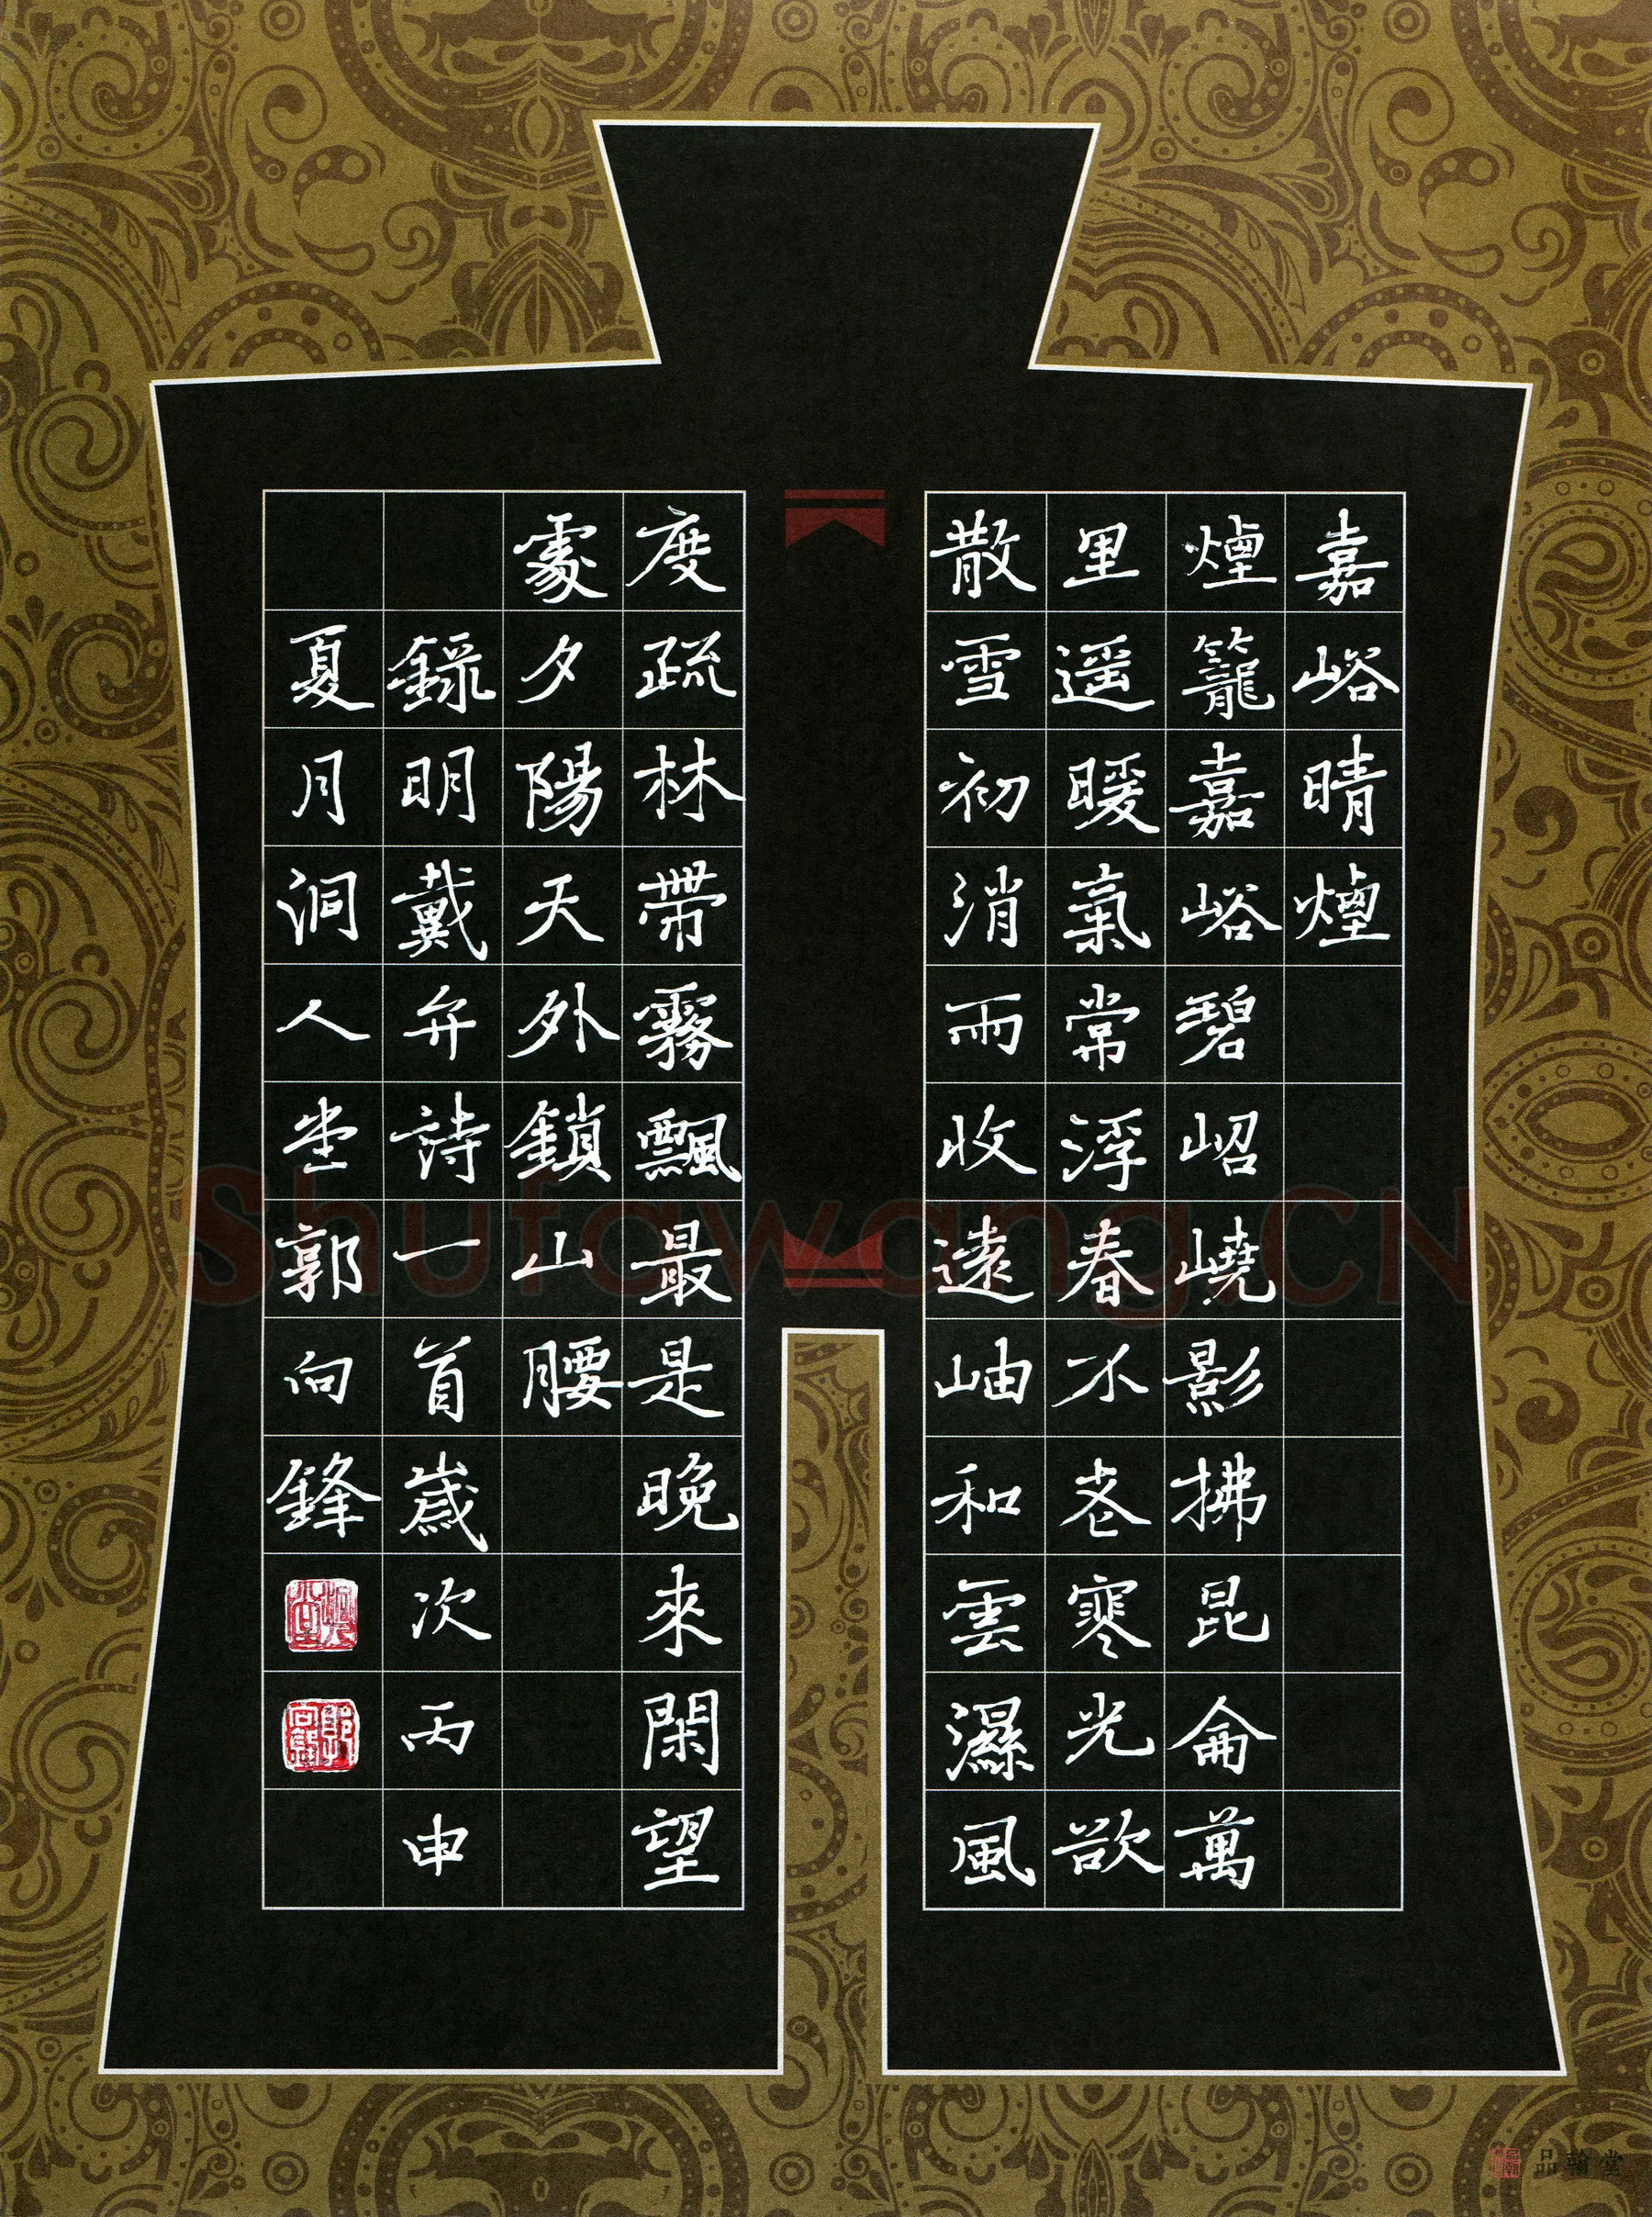 嘉峪晴煙
煙籠嘉峪碧岧嶢影拂昆侖萬
里遥暖氣常浮春不老寒光欲
散雪初消雨收遠岫和雲濕風
度疏林帶霧飄最是晚來閑望
處夕陽天外鎖山腰
錄明戴弁詩一首歲次丙申
夏月洞人堂郭向鋒
Shufawang.CN
品翰堂